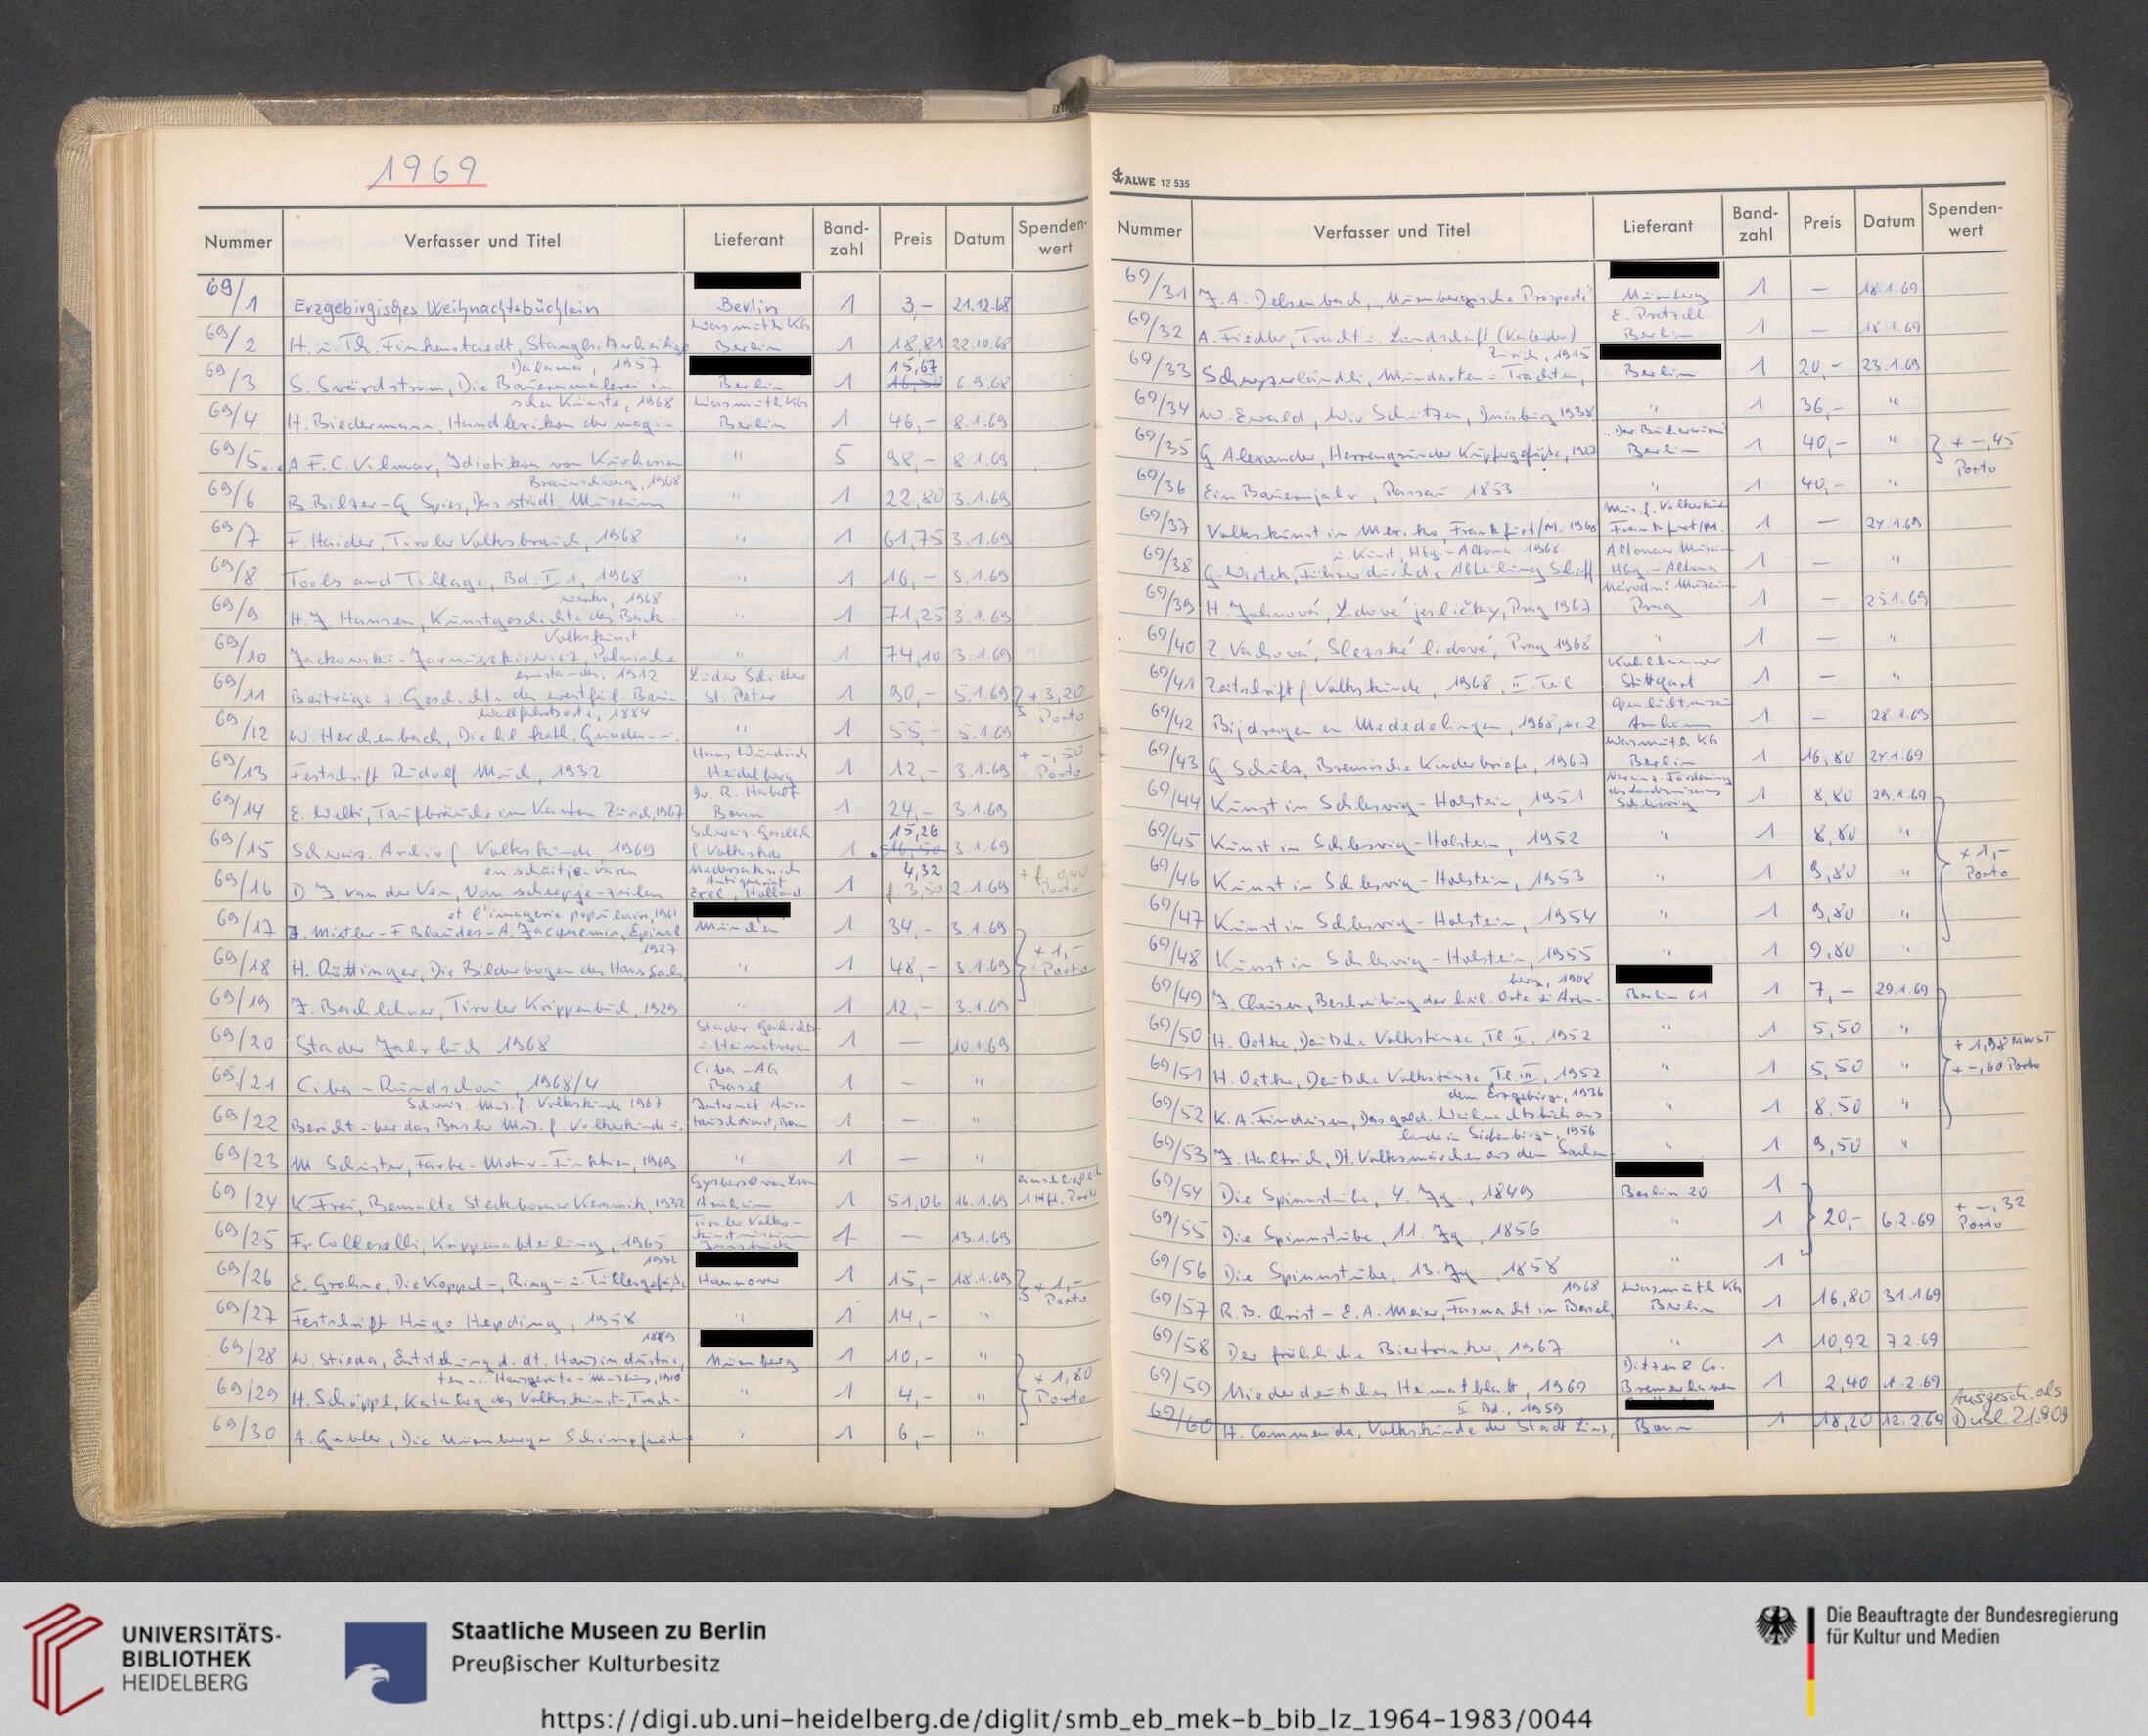 1969
Nummer Verfasser und Titel Lieferant Band-zahl Preis Datum Spenden-wert
69/1 Erzgebirgisches Weihnachtsbüchlein Berlin 1 3,- 21.12.68
69/2 H. u. Th. Finkenstaedt, Stanglsitzerheilige Wasmuth KG Berlin 1 18,81 22.10.68
69/3 S. Svärdström, Die Bauernmalerei in Dalarna, 1957 Berlin 1 15,67 16,50 6.9.68
69/4 H. Biedermann, Handlexikon der magi-schen Künste, 1968 Wasmuth KG Berlin 1 46,- 8.1.69
69/5 A.F.C. Vilmar, Idiotikon von Kurhessen " 5 98,- 8.1.69
69/6 B. Bilzer-G. Spies, Das städt. Museum Braunschweig, 1968 " 1 22,80 3.1.69
69/7 F. Haider, Tiroler Volksbrauch, 1968 " 1 61,75 3.1.69
69/8 Tools and Tillage, Bd. I 1, 1968 " 1 16,- 3.1.69
69/9 H.J. Hansen, Kunstgeschichte des Back-werks, 1968 " 1 71,25 3.1.69
69/10 Jackowski-Jarnuszkiewicz, Polnische Volkskunst " 1 74,10 3.1.69
69/11 Beiträge z. Geschichte des westfäl. Bauernstandes, 1912 St. Peter 1 90,- 5.1.69 + 3,20 Porto
69/12 W. Herchenbach, Die hl. kath. Gnaden- u. Wallfahrtsorte, 1884 " 1 55,- 5.1.69
69/13 Festschrift Rudolf Much, 1932 Heidelberg 1 12,- 3.1.69 + -,50 Porto
69/14 E. Welti, Taufbräuche im Kanton Zürich, 1967 Dr. R. Habelt Bonn 1 24,- 3.1.69
69/15 Schweiz. Archiv f. Volkskunde, 1969 Schweiz. Gesellsch. f. Volkskde 1 15,26 16,50 3.1.69
69/16 D.J. van der Ven, Van scheepje-zeilen en schuitje-varen Antiquariat Holland 1 4,32 f. 3,50 2.1.69 + f. 0,40 Porto
69/17 J. Mistler-F. Blaudez-A. Jacquemin, Epinal et l'imagerie populaire, 1961 München 1 34,- 3.1.69
69/18 H. Röttinger, Die Bilderbogen des Hans Sachs, 1927 " 1 48,- 3.1.69 + 1,- Porto
69/19 J. Bachlechner, Tiroler Krippenbuch, 1929 " 1 12,- 3.1.69
69/20 Stader Jahrbuch 1968 Stader Geschichts- u. Heimatverein 1 - 10.1.69
69/21 Ciba-Rundschau, 1968/4 Ciba-AG Basel 1 - "
69/22 Bericht über das Basler Mus. f. Völkerkunde u. Schweiz. Mus. f. Volkskunde 1967 Internat. Aus-tauschdienst, Bonn 1 - "
69/23 M. Schuster, Farbe-Motiv-Funktion, 1969 " 1 - "
69/24 K. Frei, Bemalte Steckborner Keramik, 1932 Arnheim 1 51,06 16.1.69
69/25 Fr. Colleselli, Krippenabteilung, 1965 Tiroler Volks-kunstmuseum Innsbruck 1 - 13.1.69
69/26 E. Grohne, Die Koppel-, Ring- u. Tüllengefäße 1932 Hannover 1 15,- 18.1.69 + 1,- Porto
69/27 Festschrift Hugo Hepding, 1958 " 1 14,- "
69/28 W. Stieda, Entstehung d. dt. Hausindustrie, 1889 Nürnberg 1 10,- "
69/29 H. Schöppl, Katalog des Volkskunst-, Trach-ten- u. Hausgeräte-Museums, 1910 " 1 4,- " + 1,80 Porto
69/30 A. Gabler, Die Nürnberger " 1 6,- "
KALWE 12 535
Nummer Verfasser und Titel Lieferant Band-zahl Preis Datum Spenden-wert
69/31 J.A. Delsenbach, „Nürnbergische Prospecte" Nürnberg 1 - 18.1.69
69/32 A. Fiedler, Tracht u. Landschaft (Kalender) E. Pretzell Berlin 1 - 18.1.69
69/33 Schwyzerländli, Mundarten u. Trachten, Zürich, 1915 Berlin 1 20,- 23.1.69
69/34 W. Ewald, Wir Schützen, Duisburg 1938 " 1 36,- "
69/35 G. Alexander, Herrengrunder Kupfergefäße, 1927 „Der Bücherwurm" Berlin 1 40,- " + -,45 Porto
69/36 Ein Bauernjahr, Passau 1853 " 1 40,- "
69/37 Volkskunst in Mexiko, Frankfurt/M. 1968 Mus. f. Völkerkunde Frankfurt/M. 1 - 24.1.69
69/38 G. Wietek, Führer durch d. Abteilung Schiff u. Kunst, Hbg-Altona 1968 Altonaer Museum Hbg.-Altona 1 - "
69/39 H. Johnová, Lidové jesličky, Prag 1967 Národní Muzeum Prag 1 - 25.1.69
69/40 Z. Vachová, Slezské lidové, Prag 1968 " 1 - "
69/41 Zeitschrift f. Volkskunde, 1968, II. Teil Kohlhammer Stuttgart 1 - "
69/42 Bijdragen en Mededelingen, 1968, nr. 2 Openluchtmuseum Arnheim 1 - 28.1.69
69/43 G. Schulz, Bremische Kinderbriefe, 1967 Wasmuth KG Berlin 1 16,80 24.1.69
69/44 Kunst in Schleswig-Holstein, 1951 Verein z. Förderung des Landesmuseums Schleswig 1 8,80 29.1.69
69/45 Kunst in Schleswig-Holstein, 1952 " 1 8,80 "
69/46 Kunst in Schleswig-Holstein, 1953 " 1 9,80 " + 1,- Porto
69/47 Kunst in Schleswig-Holstein, 1954 " 1 9,80 "
69/48 Kunst in Schleswig-Holstein, 1955 " 1 9,80 "
69/49 J. Clausen, Beschreibung der heil. Orte zu Aren-berg, 1908 Berlin 61 1 7,- 29.1.69
69/50 H. Oetke, Deutsche Volkstänze, Tl. II, 1952 " 1 5,50 " + 1,98 MWST
69/51 H. Oetke, Deutsche Volkstänze, Tl. III, 1952 " 1 5,50 " + -,60 Porto
69/52 K.A. Findeisen, Das gold. Weihnachtsbuch aus dem Erzgebirge, 1936 " 1 8,50 "
69/53 J. Haltrich, Dt. Volksmärchen aus dem Sachsen-lande in Siebenbürgen, 1956 " 1 9,50 "
69/54 Die Spinnstube, 4. Jg., 1849 Berlin 20 1
69/55 Die Spinnstube, 11. Jg., 1856 " 1 20,- 6.2.69 + -,32 Porto
69/56 Die Spinnstube, 13. Jg., 1858 " 1
69/57 R.B. Christ-E.A. Meier, Fasnacht in Basel, 1968 Wasmuth KG Berlin 1 16,80 31.1.69
69/58 Der fröhliche Biertrinker, 1967 " 1 10,92 7.2.69
69/59 Niederdeutsches Heimatblatt, 1969 Ditzen & Co. Bremerhaven 1 2,40 1.2.69
69/60 H. Commenda, Volkskunde der Stadt Linz, II. Bd., 1959 Bonn 1 18,20 12.2.69 Ausgesch. als Dubl. 21.909
UNIVERSITÄTS-
BIBLIOTHEK
HEIDELBERG
Staatliche Museen zu Berlin
Preußischer Kulturbesitz
Die Beauftragte der Bundesregierung
für Kultur und Medien
https://digi.ub.uni-heidelberg.de/diglit/smb_eb_mek-b_bib_lz_1964-1983/0044